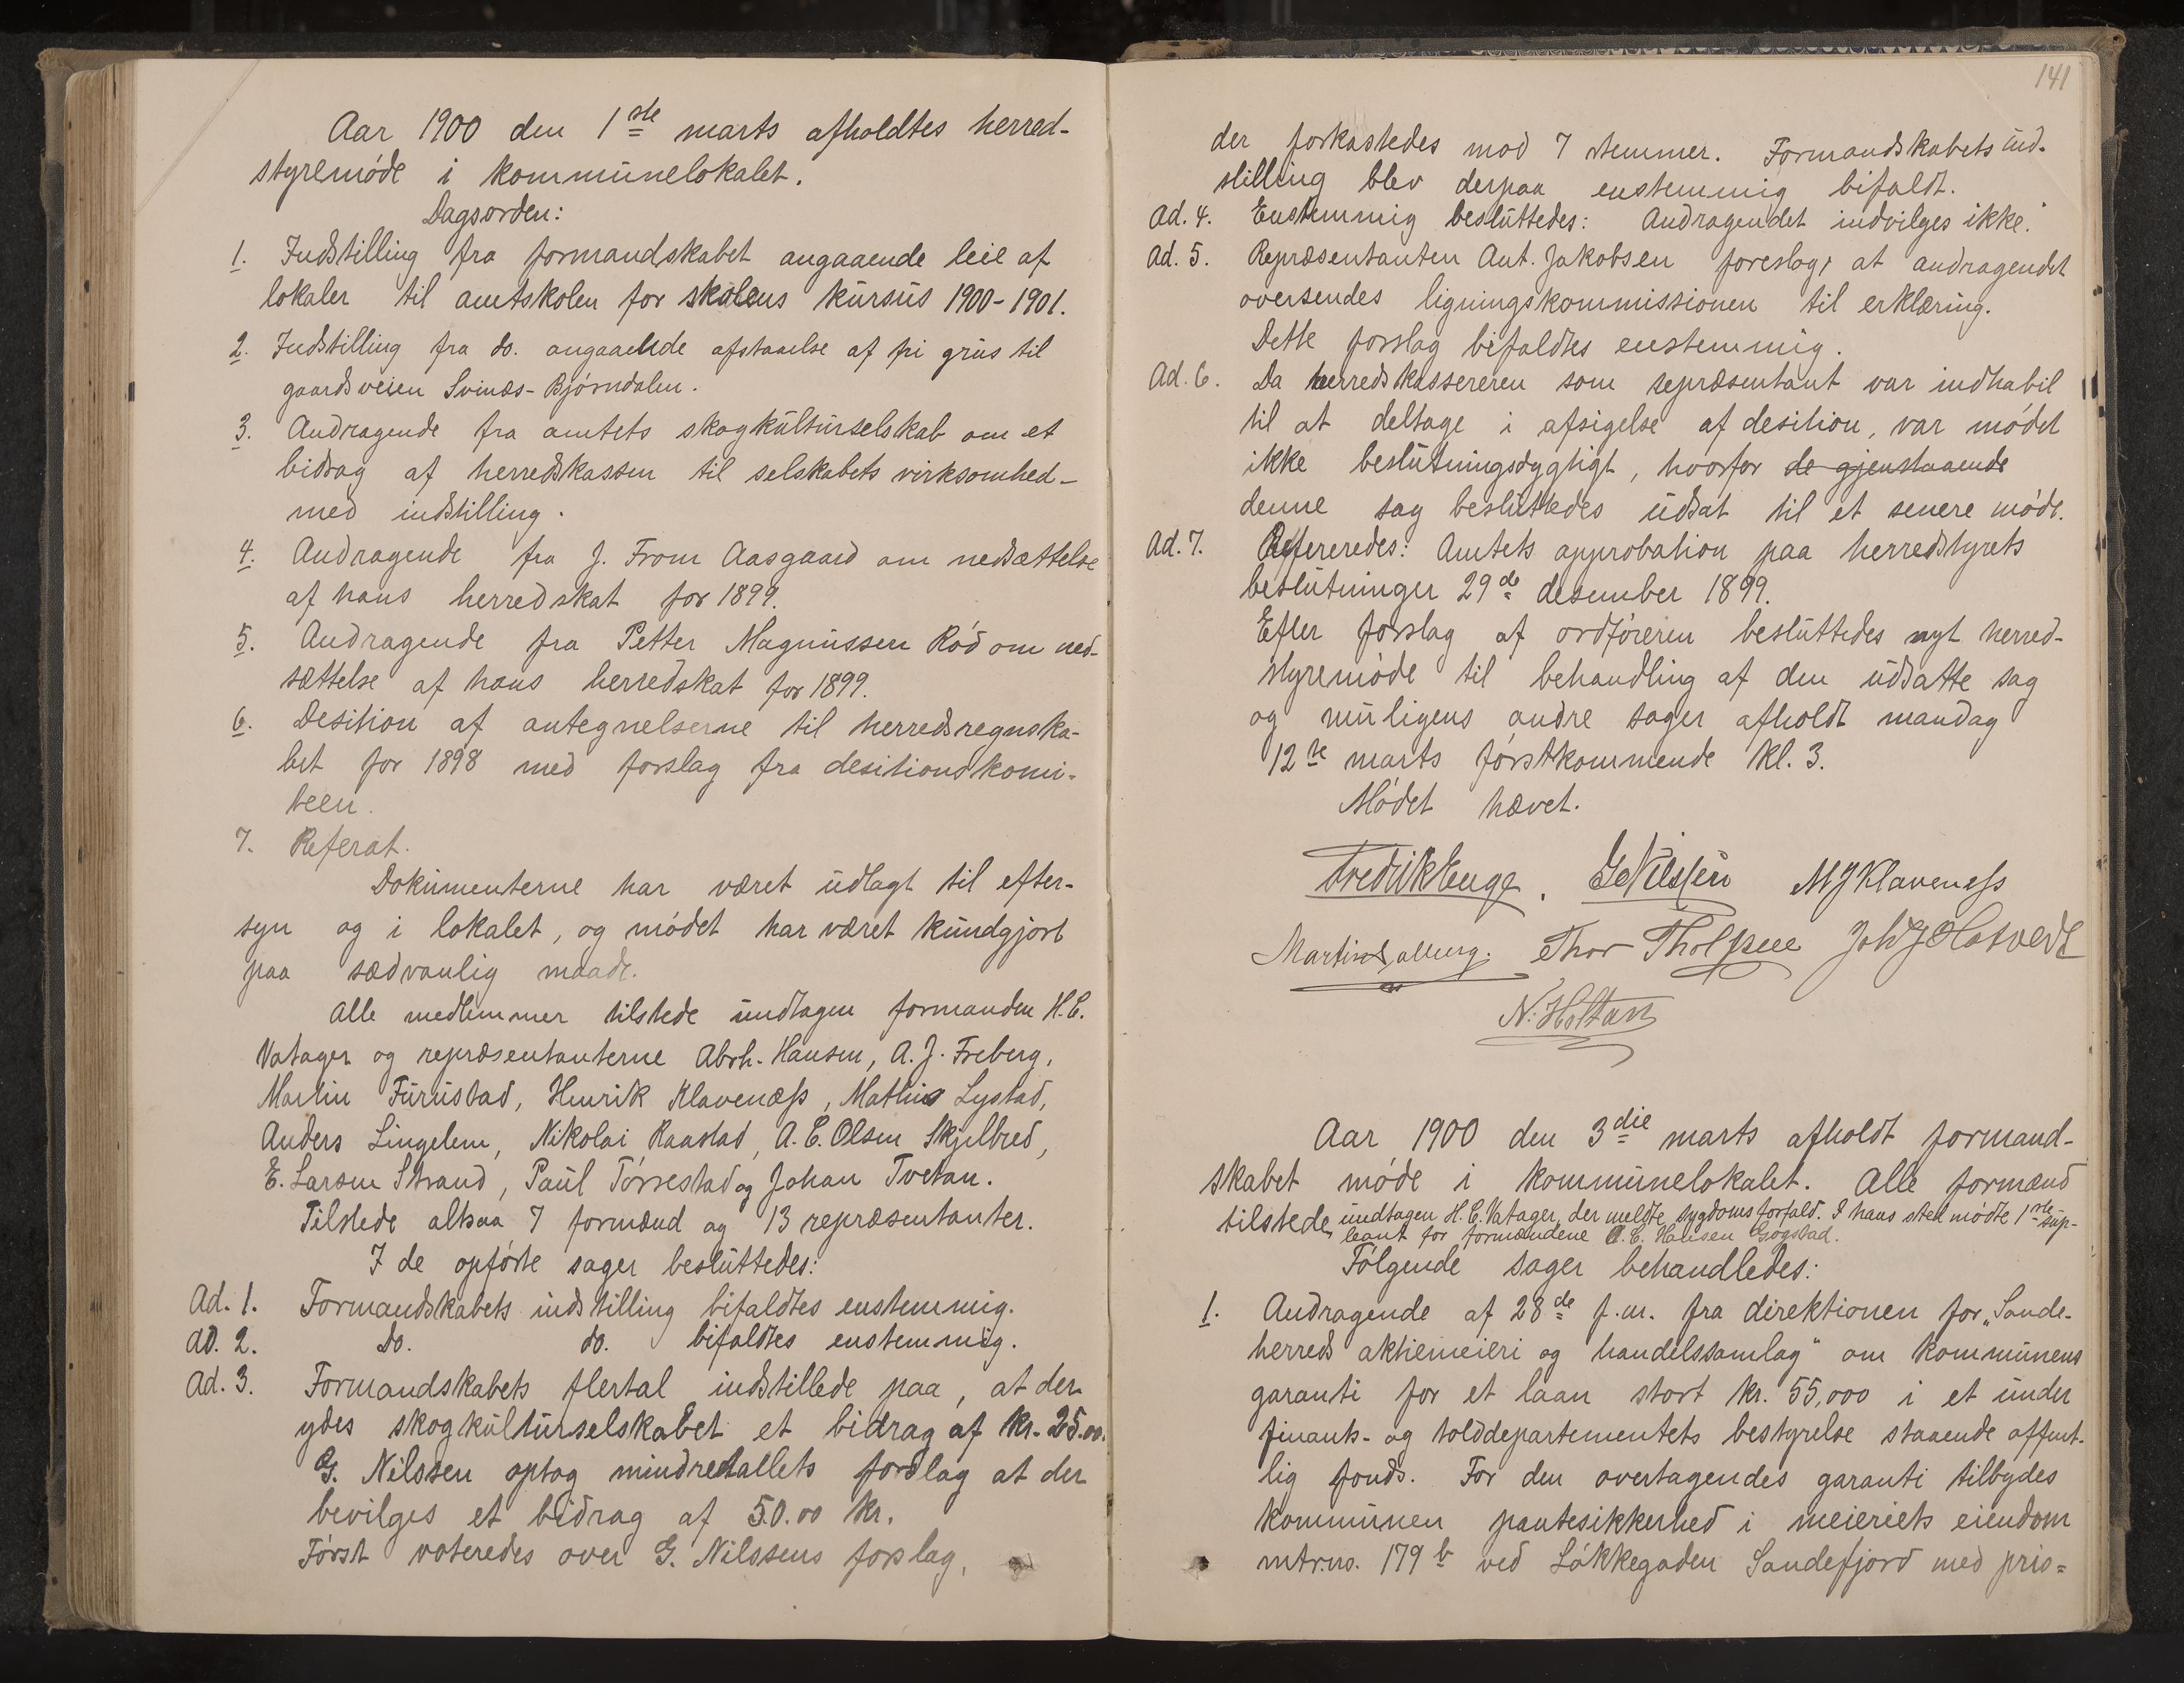 Aar 1900 den 1ste marts afholdtes herred-
styremöde i kommunelokalet.
Dagsorden:
1. Indstilling fra formandskabet angaaende leie af
lokaler til amtskolen for skolens kursus 1900-1901.
2. Indstilling fra do. angaaende afstaaelse af fri grus til
gaardsveien Svinæs-Björndalen.
3. Andragende fra amtets skogkulturselskab om et
bidrag af herredskassen til selskabets virksomhed -
med indstilling.
4. Andragende fra J. From Aasgaard om nedsættelse
af hans herredskat for 1899.
5. Andragende fra Petter Magnussen Röd om ned-
sættelse af hans herredskat for 1899.
6. Desition af antegnelserne til herredsregnska-
bet for 1898 med forslag fra desitionskomi-
teen.
7. Referat.
Dokumenterne har været udlagt til efter-
syn og i lokalet, og mödet har været kundgjort
paa sædvanlig maade.
Alle medlemmer tilstede undtagen formanden H. E.
Vatager og repræsentanterne Abrh. Hansen, A. J. Freberg,
Martin Furustad, Henrik Klavenæss, Mathias Lystad,
Anders Lingelem, Nikolai Raastad, A. E. Olsen Skjelbred,
E. Larsen Strand, Paul Törrestad og Johan Tvetan.
Tilstede altsaa 7 formænd og 13 repræsentanter.
I de opförte sager besluttedes:
Ad. 1. Formandskabets indstilling bifaldtes enstemmig.
Ad. 2. do. do. bifaldtes enstemmig.
Ad. 3. Formandskabets flertal indstillede paa, at der
ydes skogkulturselskabet et bidrag af kr. 25.00.
G. Nilssen optog mindretallets forslag at der
bevilges et bidrag af 50.00 kr.
Först voteredes over G. Nilssens forslag,
141
der forkastedes mod 7 stemmer. Formandskabets ind-
stilling blev derpaa enstemmig bifaldt.
Ad. 4. Enstemmig besluttedes: Andragendet indvilges ikke."
Ad. 5. Repræsentanten Ant. Jakobsen foreslog, at andragendet
oversendes ligningskommissionen til erklæring.
Dette forslag bifaldtes enstemmig.
Ad. 6. Da herredskassereren som repræsentant var indhabil
til at deltage i afsigelse af desition, var mödet
ikke beslutningsdygtigt, hvorfor de gjenstaaende
denne sag besluttedes udsat til et senere möde.
Ad. 7. Refereredes: Amtets approbation paa herredstyrets
beslutninger 29de desember 1899.
Efter forslag af ordföreren besluttedes nyt herred-
styremöde til behandling af den udsatte sag
og muligens andre sager afholdt mandag
12te marts förstkommende kl. 3.
Mödet hævet.
Fredrik Enge. G Nilssen M J Klaveness
Martin Dalberg. Thor Tholfsen Joh J Hotvedt
N. Holtan
Aar 1900 den 3die marts afholdt formand-
skabet möde i kommunelokalet. Alle formænd
tilstede, undtagen H. E. Vatager, der meldte sygdoms forfald. I hans sted mödte 1ste sup-
leant for formændene A. E. Hansen Gogstad.
Fölgende sager behandledes:
1. Andragende af 28de f. m. fra direktionen for „Sande-
herreds aktiemeieri og handelssamlag" om kommunens
garanti for et laan stort kr. 55,000 i et under
finants- og tolddepartementets bestyrelse staaende offent-
lig fonds. For den overtagendes garanti tilbydes
kommunen pantesikkerhed i meieriets eiendom
mtr.no. 179b ved Lökkegaden Sandefjord med prio=